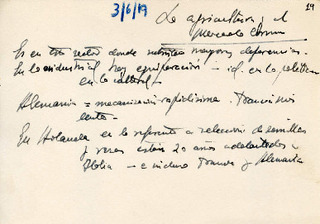 3/6/19
29
La agricultura y el
Mercado Común
Es en este sector donde existen mayores diferencias.
En lo industrial hay equiparación - id. en lo político
en lo cultural -
Alemania = mecanización rapidísima. Francia más
lenta -
En Holanda en lo referente a selección de semillas
y vacas están 20 años adelantados a
Italia - e incluso Francia y Alemania